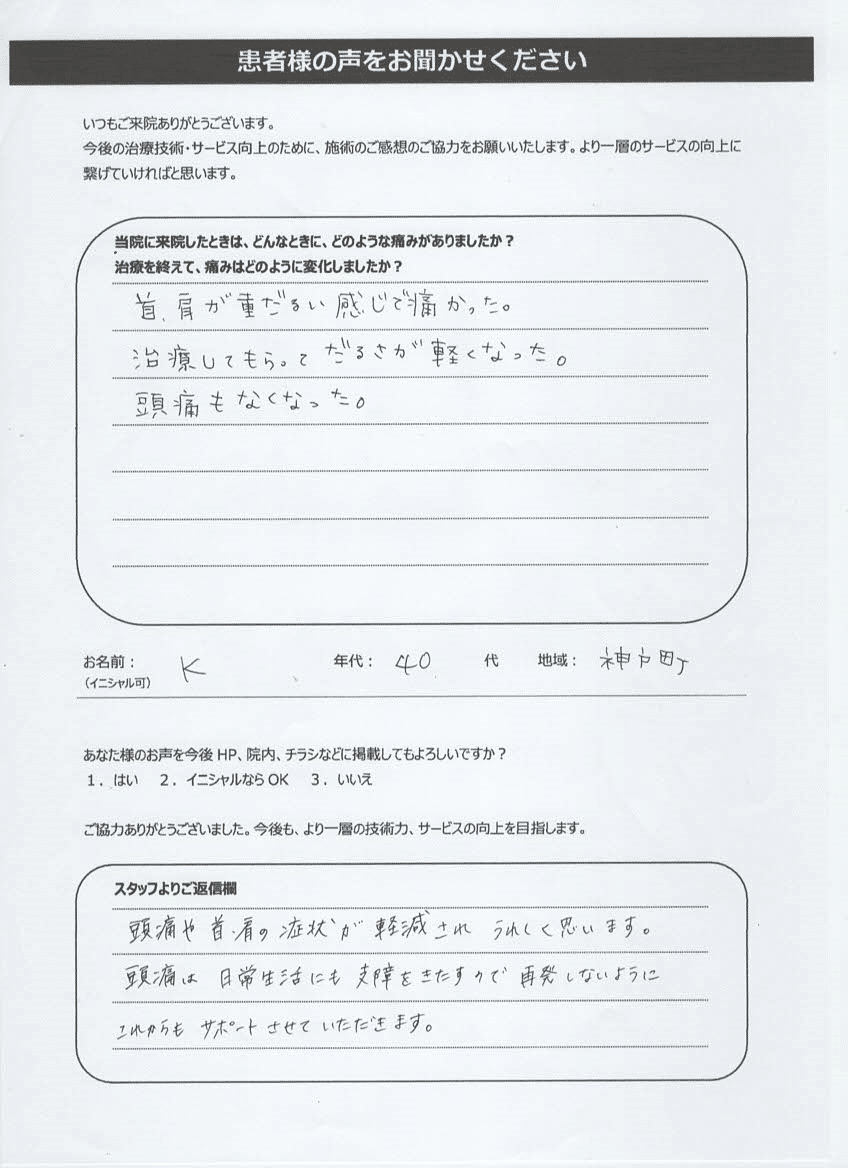 患者様の声をお聞かせください
いつもご来院ありがとうございます。
今後の治療技術・サービス向上のために、施術のご感想のご協力をお願いいたします。より一層のサービスの向上に
繋げていければと思います。
当院に来院したときは、どんなときに、どのような痛みがありましたか？
治療を終えて、痛みはどのように変化しましたか？
首、肩が重だるい感じで痛かった。
治療してもらって だるさが軽くなった。
頭痛もなくなった。
お名前： K 年代： 40 代 地域： 神戸町
（イニシャル可）
あなた様のお声を今後 HP、院内、チラシなどに掲載してもよろしいですか？
１．はい ２．イニシャルなら OK ３．いいえ
ご協力ありがとうございました。今後も、より一層の技術力、サービスの向上を目指します。
スタッフよりご返信欄
頭痛や首・肩の症状が軽減され うれしく思います。
頭痛は 日常生活にも支障をきたすので 再発しないように
これからも サポートさせていただきます。